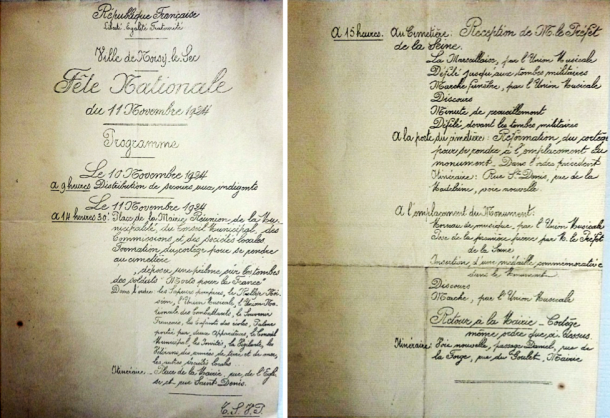 République Française
Liberté, Egalité, Fraternité
Ville de Noisy-le-Sec
Fête Nationale
du 11 Novembre 1924
Programme
Le 10 Novembre 1924
à 9 heures Distribution de secours aux indigents
Le 11 Novembre 1924
à 14 heures 30: Place de la Mairie Réunion de la Mu-
nicipalité, du Conseil Municipal, des
Commissions et des Sociétés locales
Formation du cortège pour se rendre
au cimetière
, déposer une palme sur les tombes
des soldats "Morts pour la France"
Dans l'ordre: les Sapeurs pompiers, le
l'Union Musicale, l'Union Na-
tionale des combattants, le Souvenir
Français, les Enfants des écoles, Palme
portée par deux le Conseil
Municipal, les Comités, les
Vétérans des armées de terre et de mer,
les autres sociétés locales
Itinéraire. Place de la Mairie, rue de l'Egli-
se et rue Saint-Denis.
T.S.V.P.
à 15 heures. Au Cimetière: Réception de M. le Préfet
de la Seine.
La Marseillaise, par l'Union Musicale
Défilé jusqu'aux tombes militaires
Marche funèbre, par l'Union Musicale
Discours
Minute de recueillement
Défilé devant les tombes militaires
A la porte du cimetière: Reformation du cortège
pour se rendre à l'emplacement du
monument - Dans l'ordre précédent
Itinéraire: Rue St-Denis, rue de la
voie nouvelle
A l'emplacement du Monument:
Morceau de musique, par l'Union Musicale
Pose de la première pierre par M. le Préfet
de la Seine
Insertion d'une médaille commémorative
dans le Monument
Discours
Marche, par l'Union Musicale
Retour à la Mairie - Cortège
même ordre que ci-dessus.
Itinéraire: Voie nouvelle, passage Damoil, rue de
la Forge, rue du Goulet, Mairie